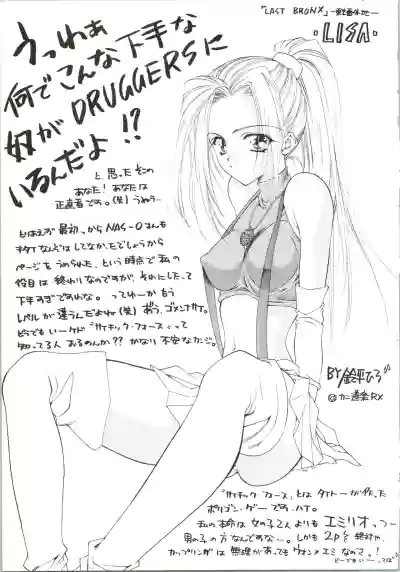 「LAST BRONX」-東京番外地-
・LISA・
うっわぁ
何でこんな下手な
奴がDRUGGERSに
いるんだよ!?
と思ったそこの
あなた!あなたは
正直者です。(笑)うぬぅ…
とはいえ最初っからNAS-Oさんも
キタイなんぞはしてなかったでしょうから
ページをうめられた、という時点で私の
役目は終わりなのですが、それにしたって
下手すぎですわな。 ってゆーかもう
レベルが違うんだよねー(笑)おう、ゴメンナサイ。
どうでもいーケド"サイキック・フォース"って
知ってる人おるのんか??かなり不安なカンジ。
BY 鈴平ひろ
@カニ道楽RX
"サイキックフォース"とはタイトーが作った
ポリゴン・ゲーです。ハイ。
私の本命は女の子2人よりもエミリオっつー
男の子の方なんですな…。しかも2Pを絶対に、
カップリングは無理があってもウォン×エミなのさっ!
どーでもいーってば